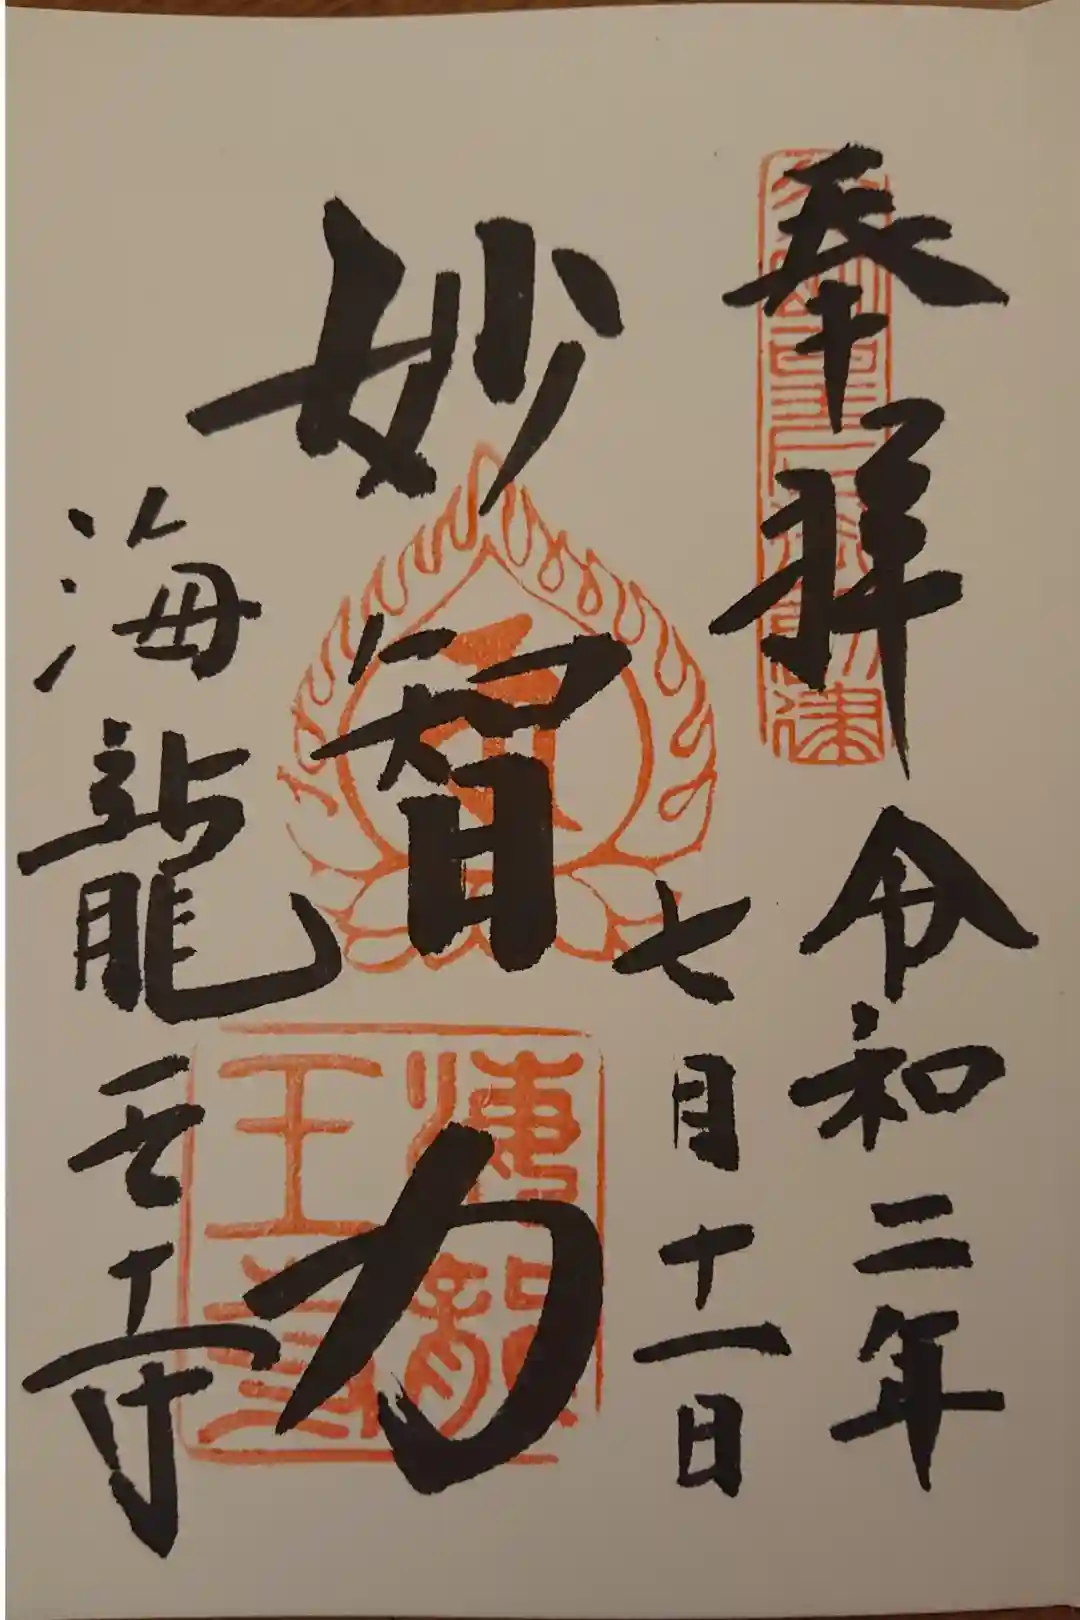 奉拝
令和二年
七月十一日
妙智力
海龍王寺
海龍
王寺